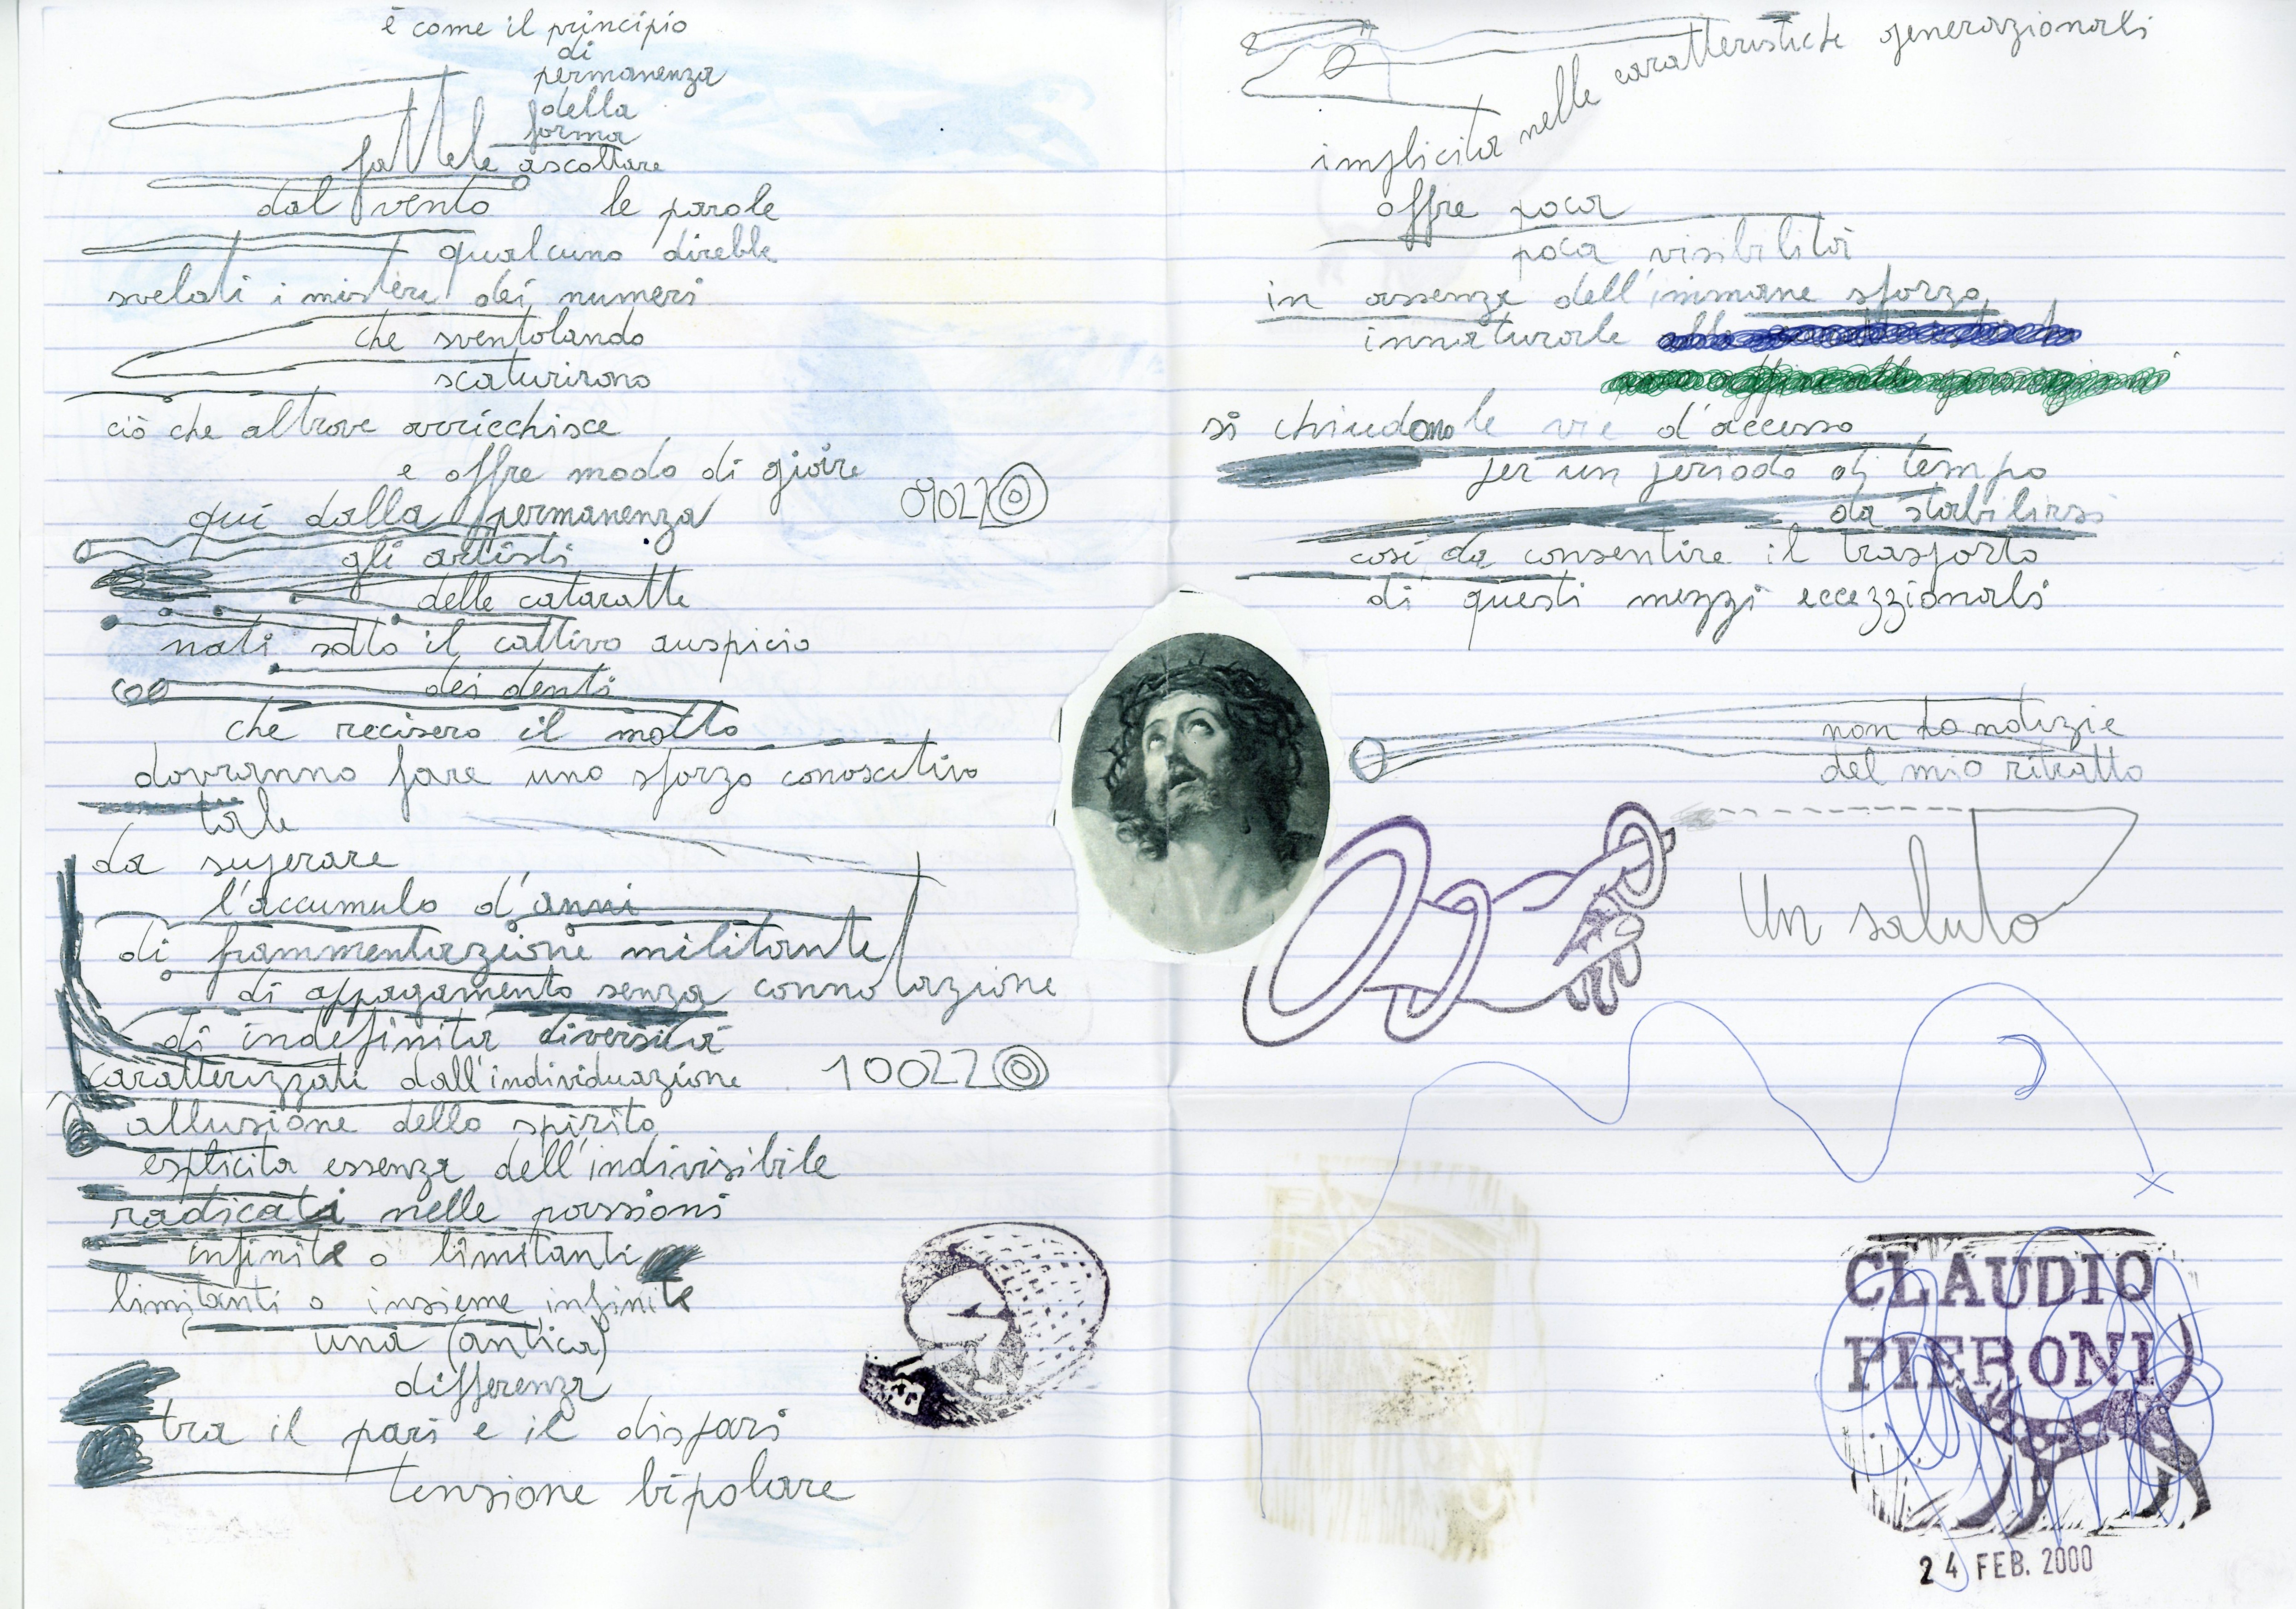 è come il principio
di
permanenza
della
forma
fattele ascoltare
dal vento le parole
qualcuno direbbe
svelati i misteri dei numeri
che sventolando
scaturirono
ciò che altrove arricchisce
e offre modo di gioire
qui dalla permanenza
gli artisti
delle cataratte
nati sotto il cattivo auspicio
dei denti
che recisero il motto
dovranno fare uno sforzo conoscitivo
tale
da superare
l'accumulo d'anni
di frammentazione militante
di appagamento senza connotazione
di indefinita diversità
caratterizzati dall'individuazione
10022
allusione dello spirito
esplicita essenza dell'indivisibile
radicati nelle passioni
infinite o limitanti
limitanti o insieme infinite
una (antica)
differenza
tra il pari e il dispari
tensione bipolare
implicita nelle caratteristiche generazionali
offre poca
poca visibilità
in assenza dell'immane sforzo
innaturale
si chiudono le vie d'accesso
per un periodo di tempo
da stabilirsi
così da consentire il trasporto
di questi mezzi eccezzionali
non ho notizie
del mio ritratto
Un saluto
CLAUDIO
PIERONI
24 FEB. 2000